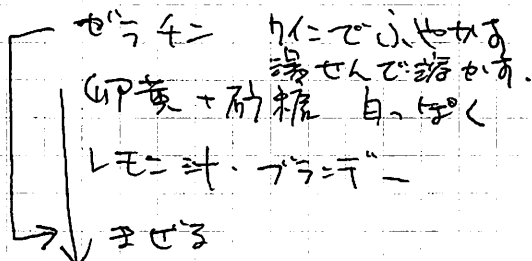 ゼラチン ワインでふやかす
湯せんで溶かす.
卵黄+砂糖 白っぽく
レモン汁・ブランデー
まぜる